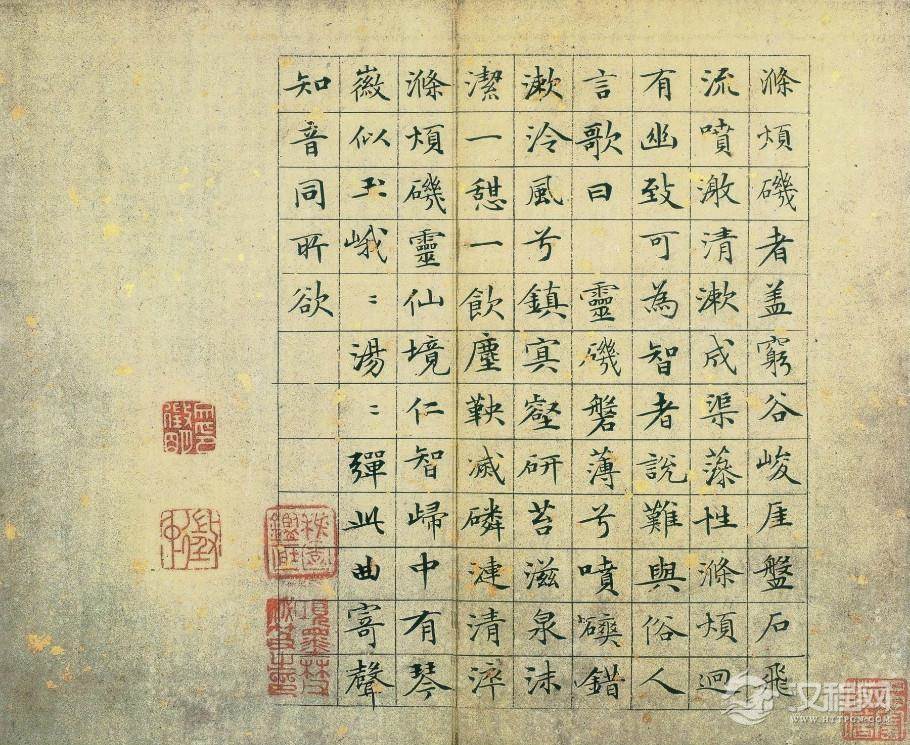 滌煩磯者盖窮谷峻厓盤石飛
流噴激清漱成渠藻性滌煩迥
有幽致可為智者說難與俗人
言歌曰 靈磯磐薄兮噴礇錯
漱泠風兮鎮冥壑研苔滋泉沫
潔一憇一飲塵鞅滅磷漣清淬
滌煩磯靈仙境仁智歸中有琴
徽似玉峨〻湯〻彈此曲寄聲
知音同所欲
汉程网
WWW.HTTPCN.COM